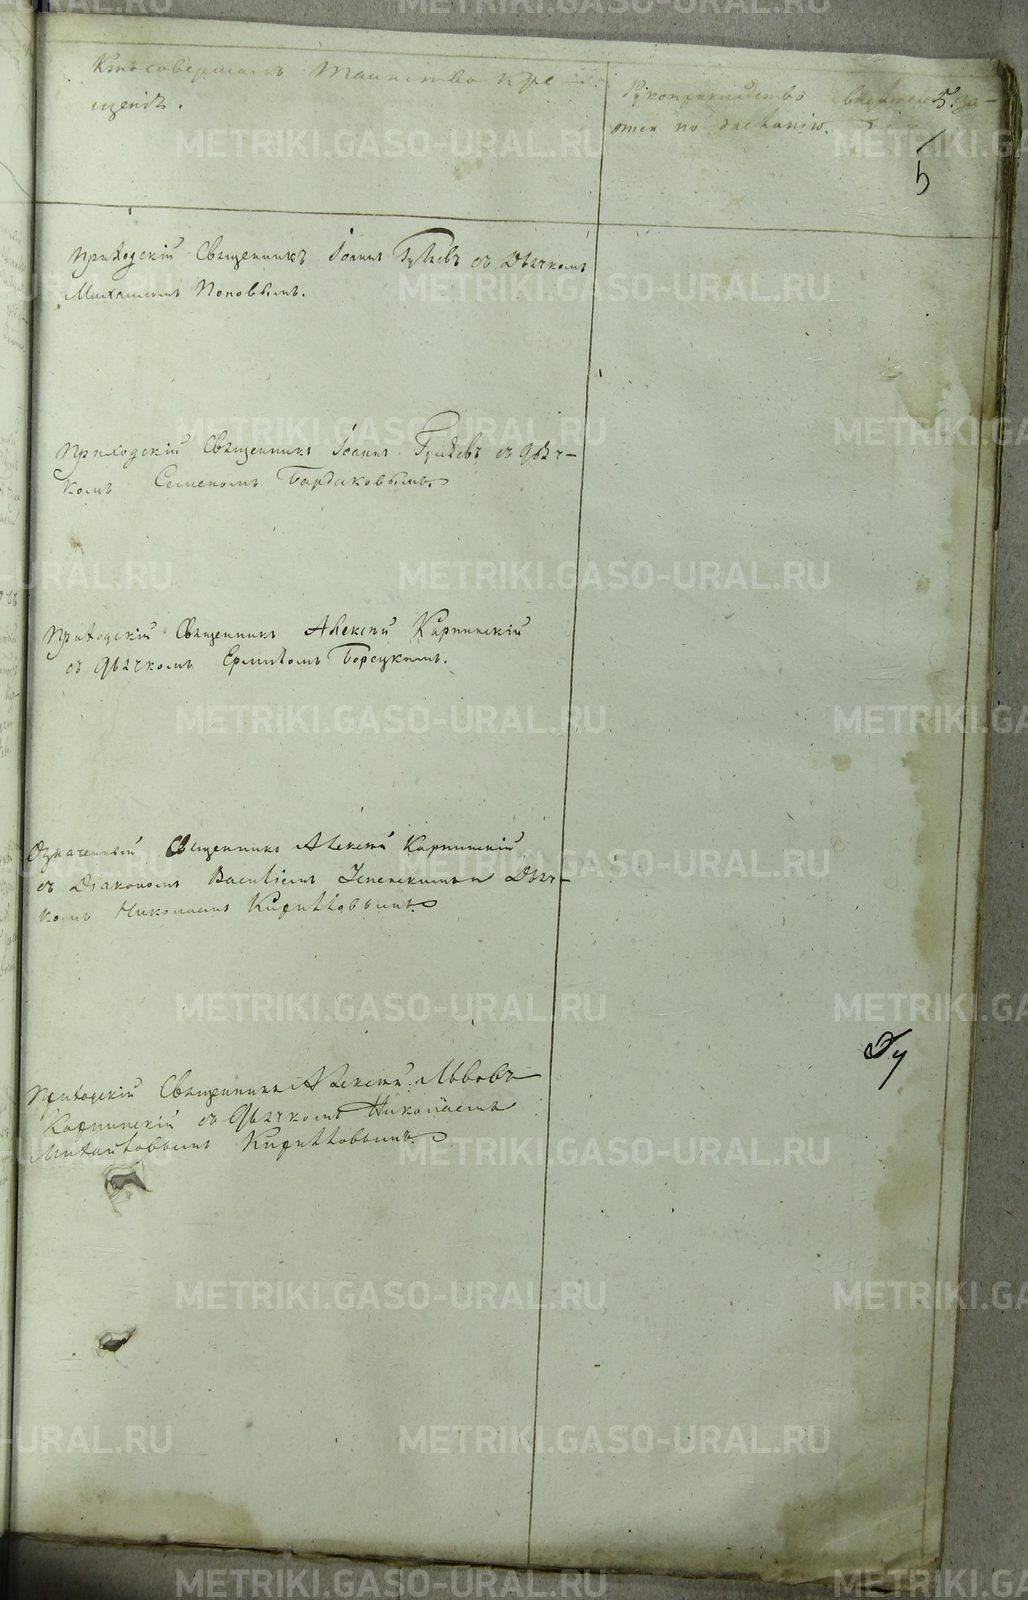 Кто совершалъ таинство кре
щенія.
Рукоприкладство свидетелей за-
писи по желанію.
5.
5
Приходскій Священникъ Іоаннъ Гуляевъ съ Дьячкомъ
Михаиломъ Поповымъ.
Приходскій Священникъ Іоаннъ Гуляевъ съ дьяч-
комъ Семеномъ Бардаковымъ.
Приходскій Священникъ Алексій Карпинскій
съ дьячкомъ Ермиломъ Борецкимъ.
Означенный Священникъ Алексій Карпинскій
съ Діакономъ Василіемъ Дьяч-
комъ Николаемъ Кирилловымъ.
Приходскій Священникъ Алексій Львовъ
Карпинскій съ дьячкомъ Николаемъ
Михайловымъ Кирилловымъ.
METRIKI.GASO-URAL.RU